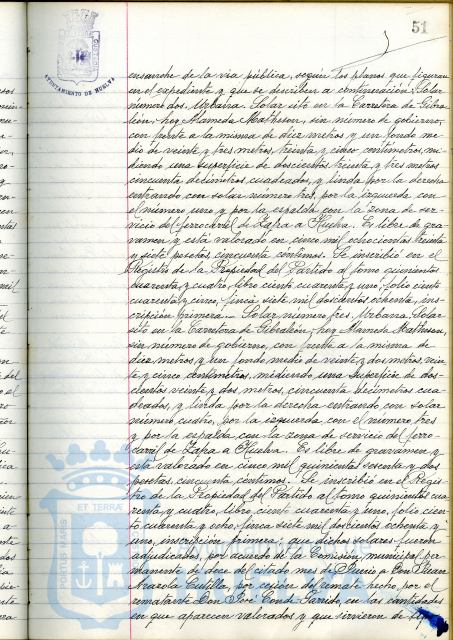 51
AYUNTAMIENTO DE HUELVA
ensanche de la via pública, según los planos que figuran
en el expediente y que se describen a continuación: Solar
número dos. Urbana. Solar sito en la Carretera de Gibra-
león, hoy Alameda Matheson, sin número de gobierno,
con frente a la misma de diez metros y un fondo me-
dio de veinte y tres metros, treinta y cinco centímetros, mi-
diendo una superficie de doscientos treinta y tres metros
cincuenta decímetros cuadrados, y linda por la derecha
entrando con solar número tres, por la izquierda con
el número uno y por la espalda con la zona de ser-
vicio del ferrocarril de Zafra a Huelva. Es libre de gra-
vamen y está valorado en cinco mil ochocientas treinta
y siete pesetas cincuenta céntimos. Se inscribió en el
Registro de la Propiedad del Partido al tomo quinientos
cuarenta y cuatro, libro ciento cuarenta y uno, folio ciento
cuarenta y cinco, finca siete mil doscientos ochenta, ins-
cripción primera.- Solar número tres. Urbana. Solar
sito en la Carretera de Gibraleón, hoy Alameda Matheson,
sin número de gobierno, con frente a la misma de
diez metros, y un fondo medio de veinte y dos metros, vein-
te y cinco centímetros, midiendo una superficie de dos-
cientos veinte y dos metros, cincuenta decímetros cua-
drados, y linda por la derecha entrando con solar
número cuatro, por la izquierda con el número tres
y por la espalda con la zona de servicio del ferro-
carril de Zafra a Huelva. Es libre de gravamen y
está valorado en cinco mil quinientas sesenta y dos
pesetas, cincuenta céntimos. Se inscribió en el Regis-
tro de la Propiedad del Partido al tomo quinientos cua-
renta y cuatro, libro ciento cuarenta y uno, folio cien-
to cuarenta y ocho, finca siete mil doscientos ochenta y
uno, inscripción primera; que dichos solares fueron
adjudicados, por acuerdo de la Comisión municipal per-
manente de doce del citado mes de Junio a Don Juan
Mazola Cutilla, por cesión del remate hecho por el
rematante Don José Conde Garrido, en las cantidades
en que aparecen valorados y que sirvieron de tipo
PORTUS MARIS ET TERRAE